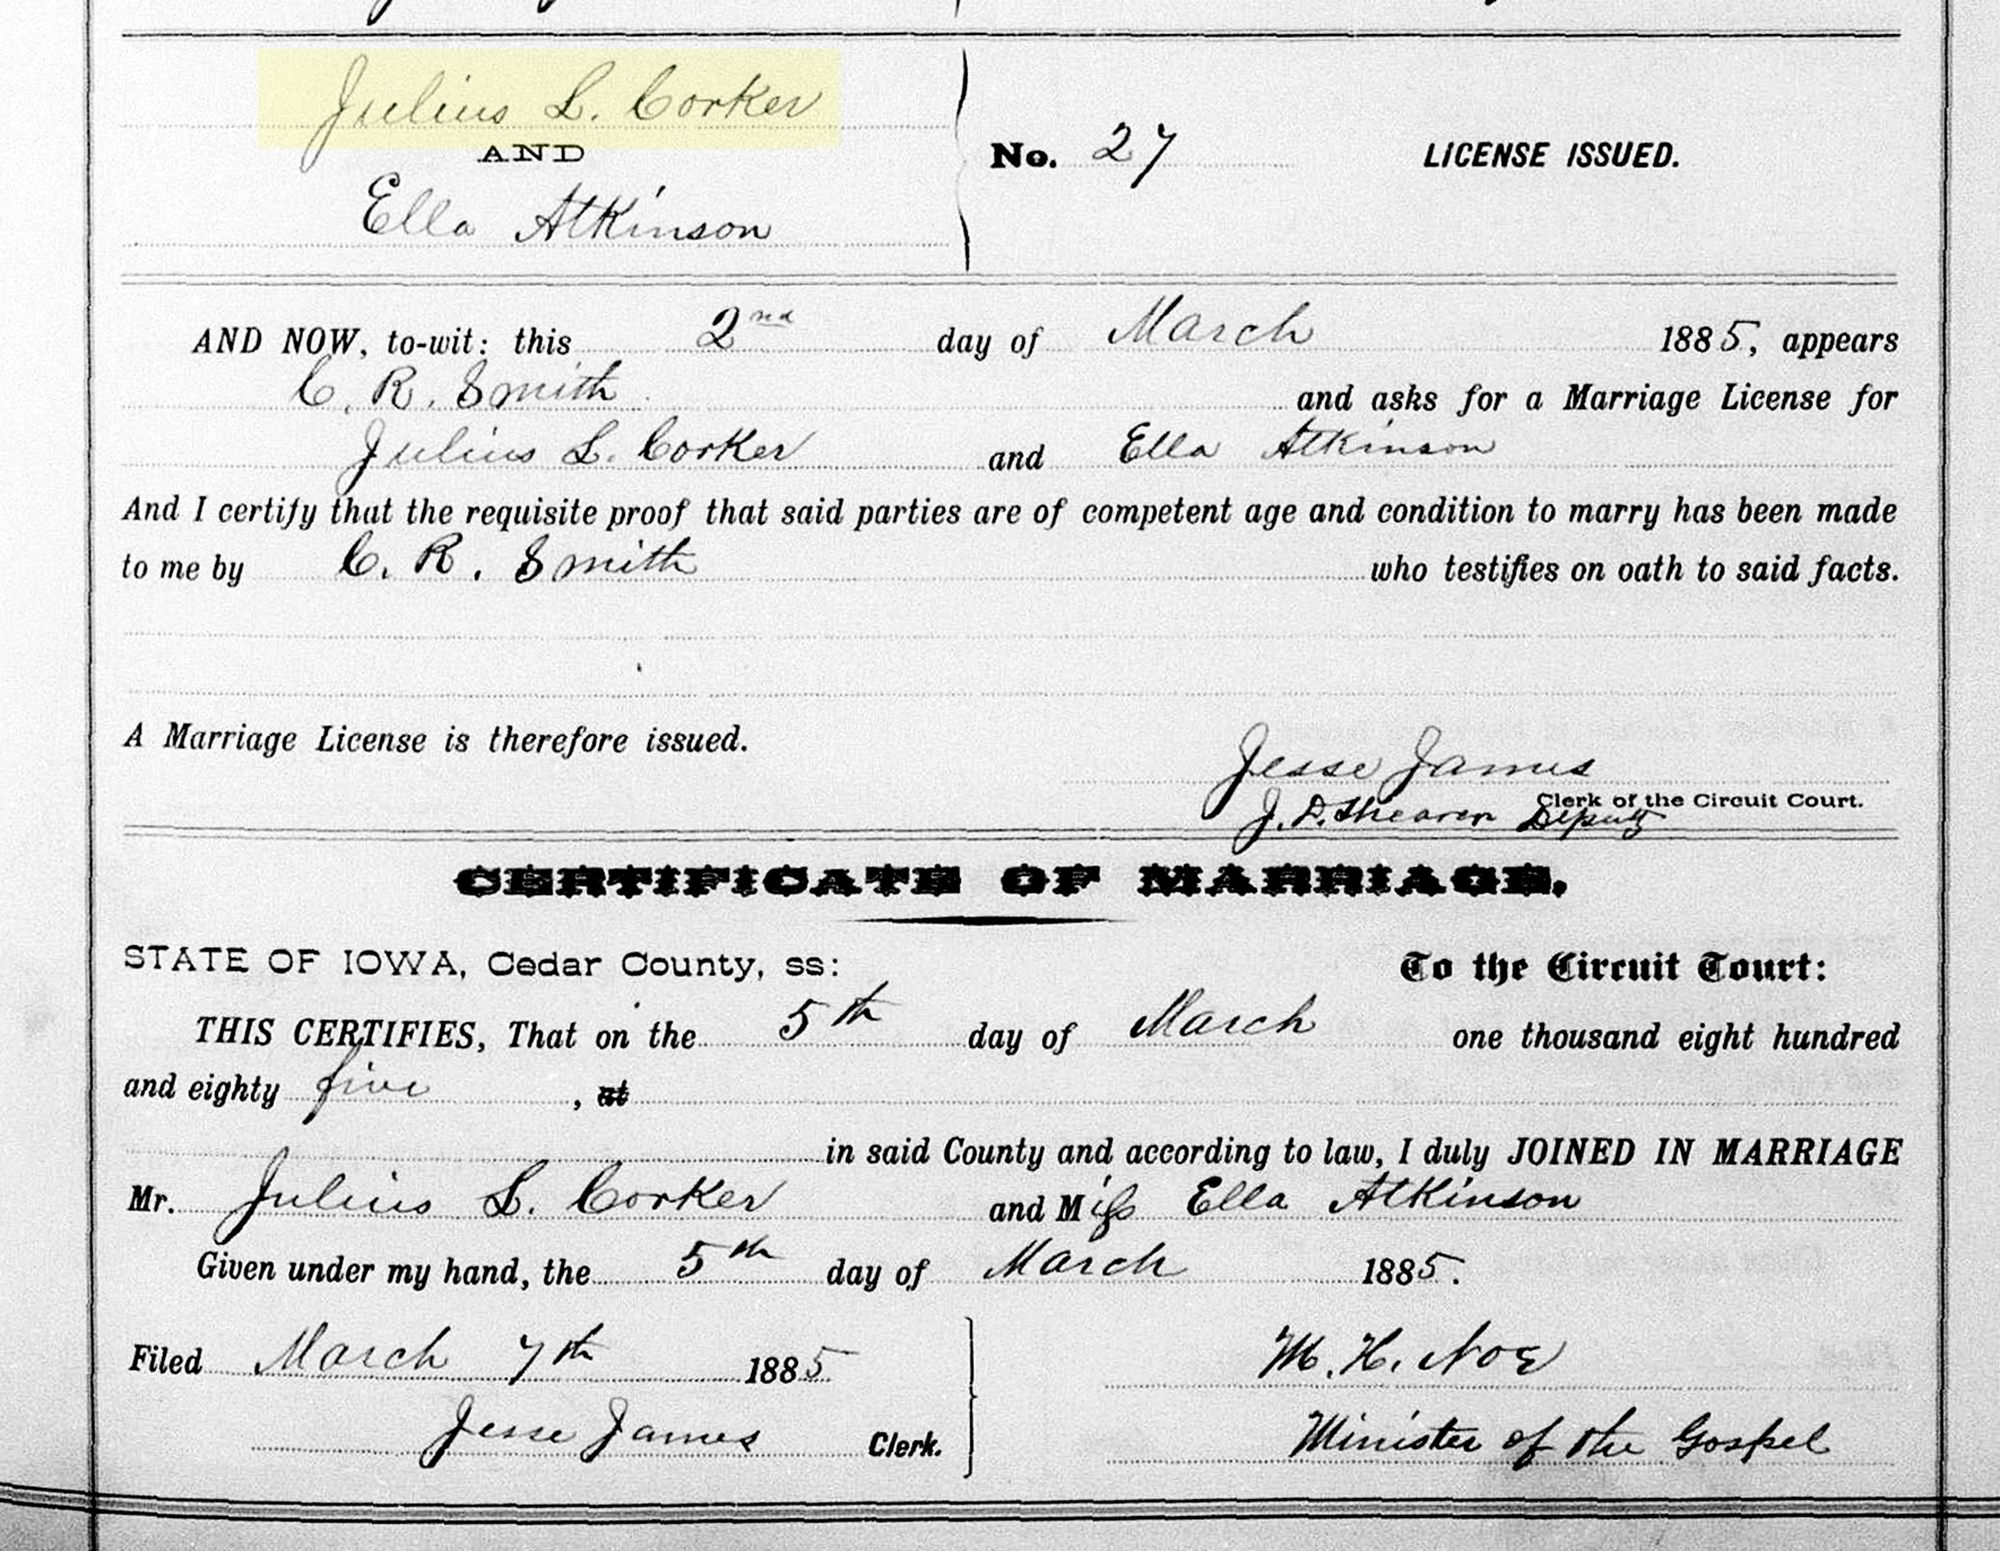 Julius L. Corker
AND
Ella Atkinson
No. 27 LICENSE ISSUED.
AND NOW, to-wit: this 2nd day of March 1885, appears
C. R. Smith and asks for a Marriage License for
Julius L. Corker and Ella Atkinson
And I certify that the requisite proof that said parties are of competent age and condition to marry has been made
to me by C. R. Smith who testifies on oath to said facts.
A Marriage License is therefore issued.
Jesse James
Clerk of the Circuit Court.
J. D. Shearer Deputy
CERTIFICATE OF MARRIAGE.
STATE OF IOWA, Cedar County, ss: To the Circuit Court:
THIS CERTIFIES, That on the 5th day of March one thousand eight hundred
and eighty five, at
in said County and according to law, I duly JOINED IN MARRIAGE
Mr. Julius L. Corker and Miss Ella Atkinson
Given under my hand, the 5th day of March 1885.
Filed March 7th 1885
Jesse James Clerk.
M. H. Noe
Minister of the Gospel